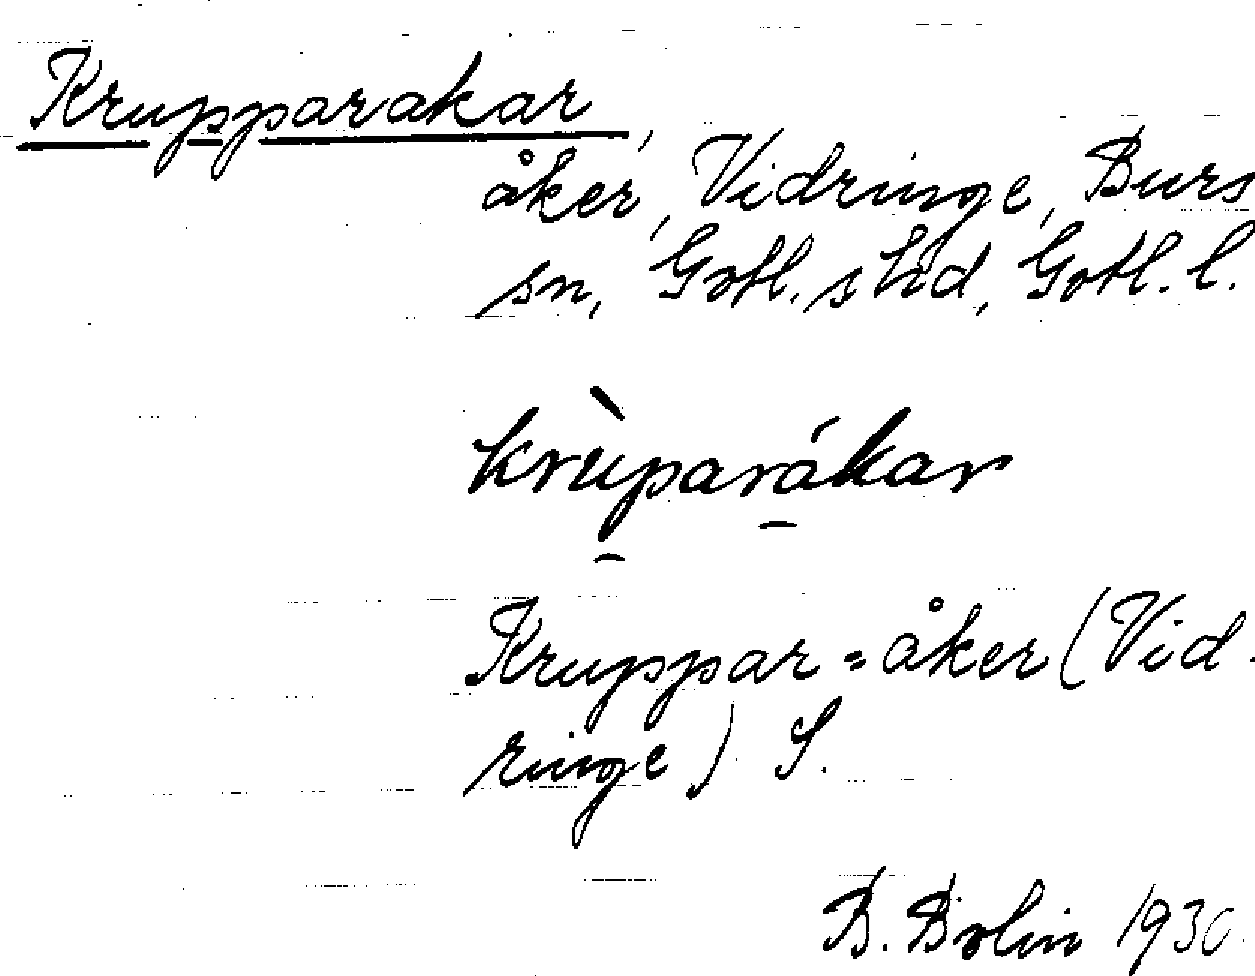 Krupparakar,
åker, Vidringe, Burs
sn, Gotl. s hd, Gotl. l.
krùparákar
Kruppar=åker (Vid-
ringe) S.
B. Bolin 1930.